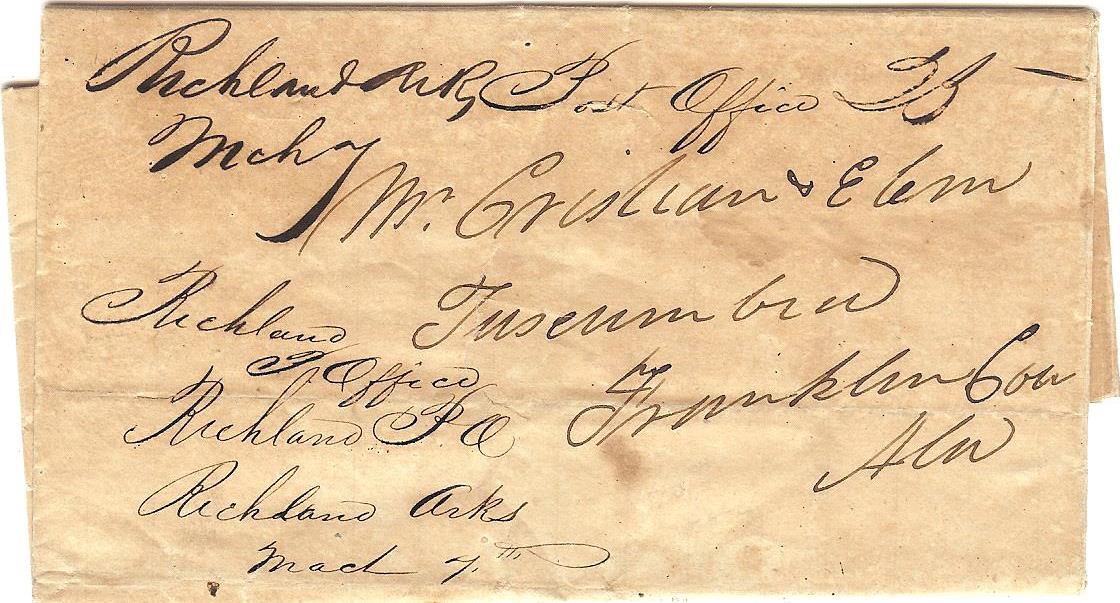 Richland Arks Post Office 25
Mch 7
Mr Cristian & Elem
Tuscumbia
Franklin Cou
Ala
Richland
P Office
Richland P O
Richland Arks
Mach 7th